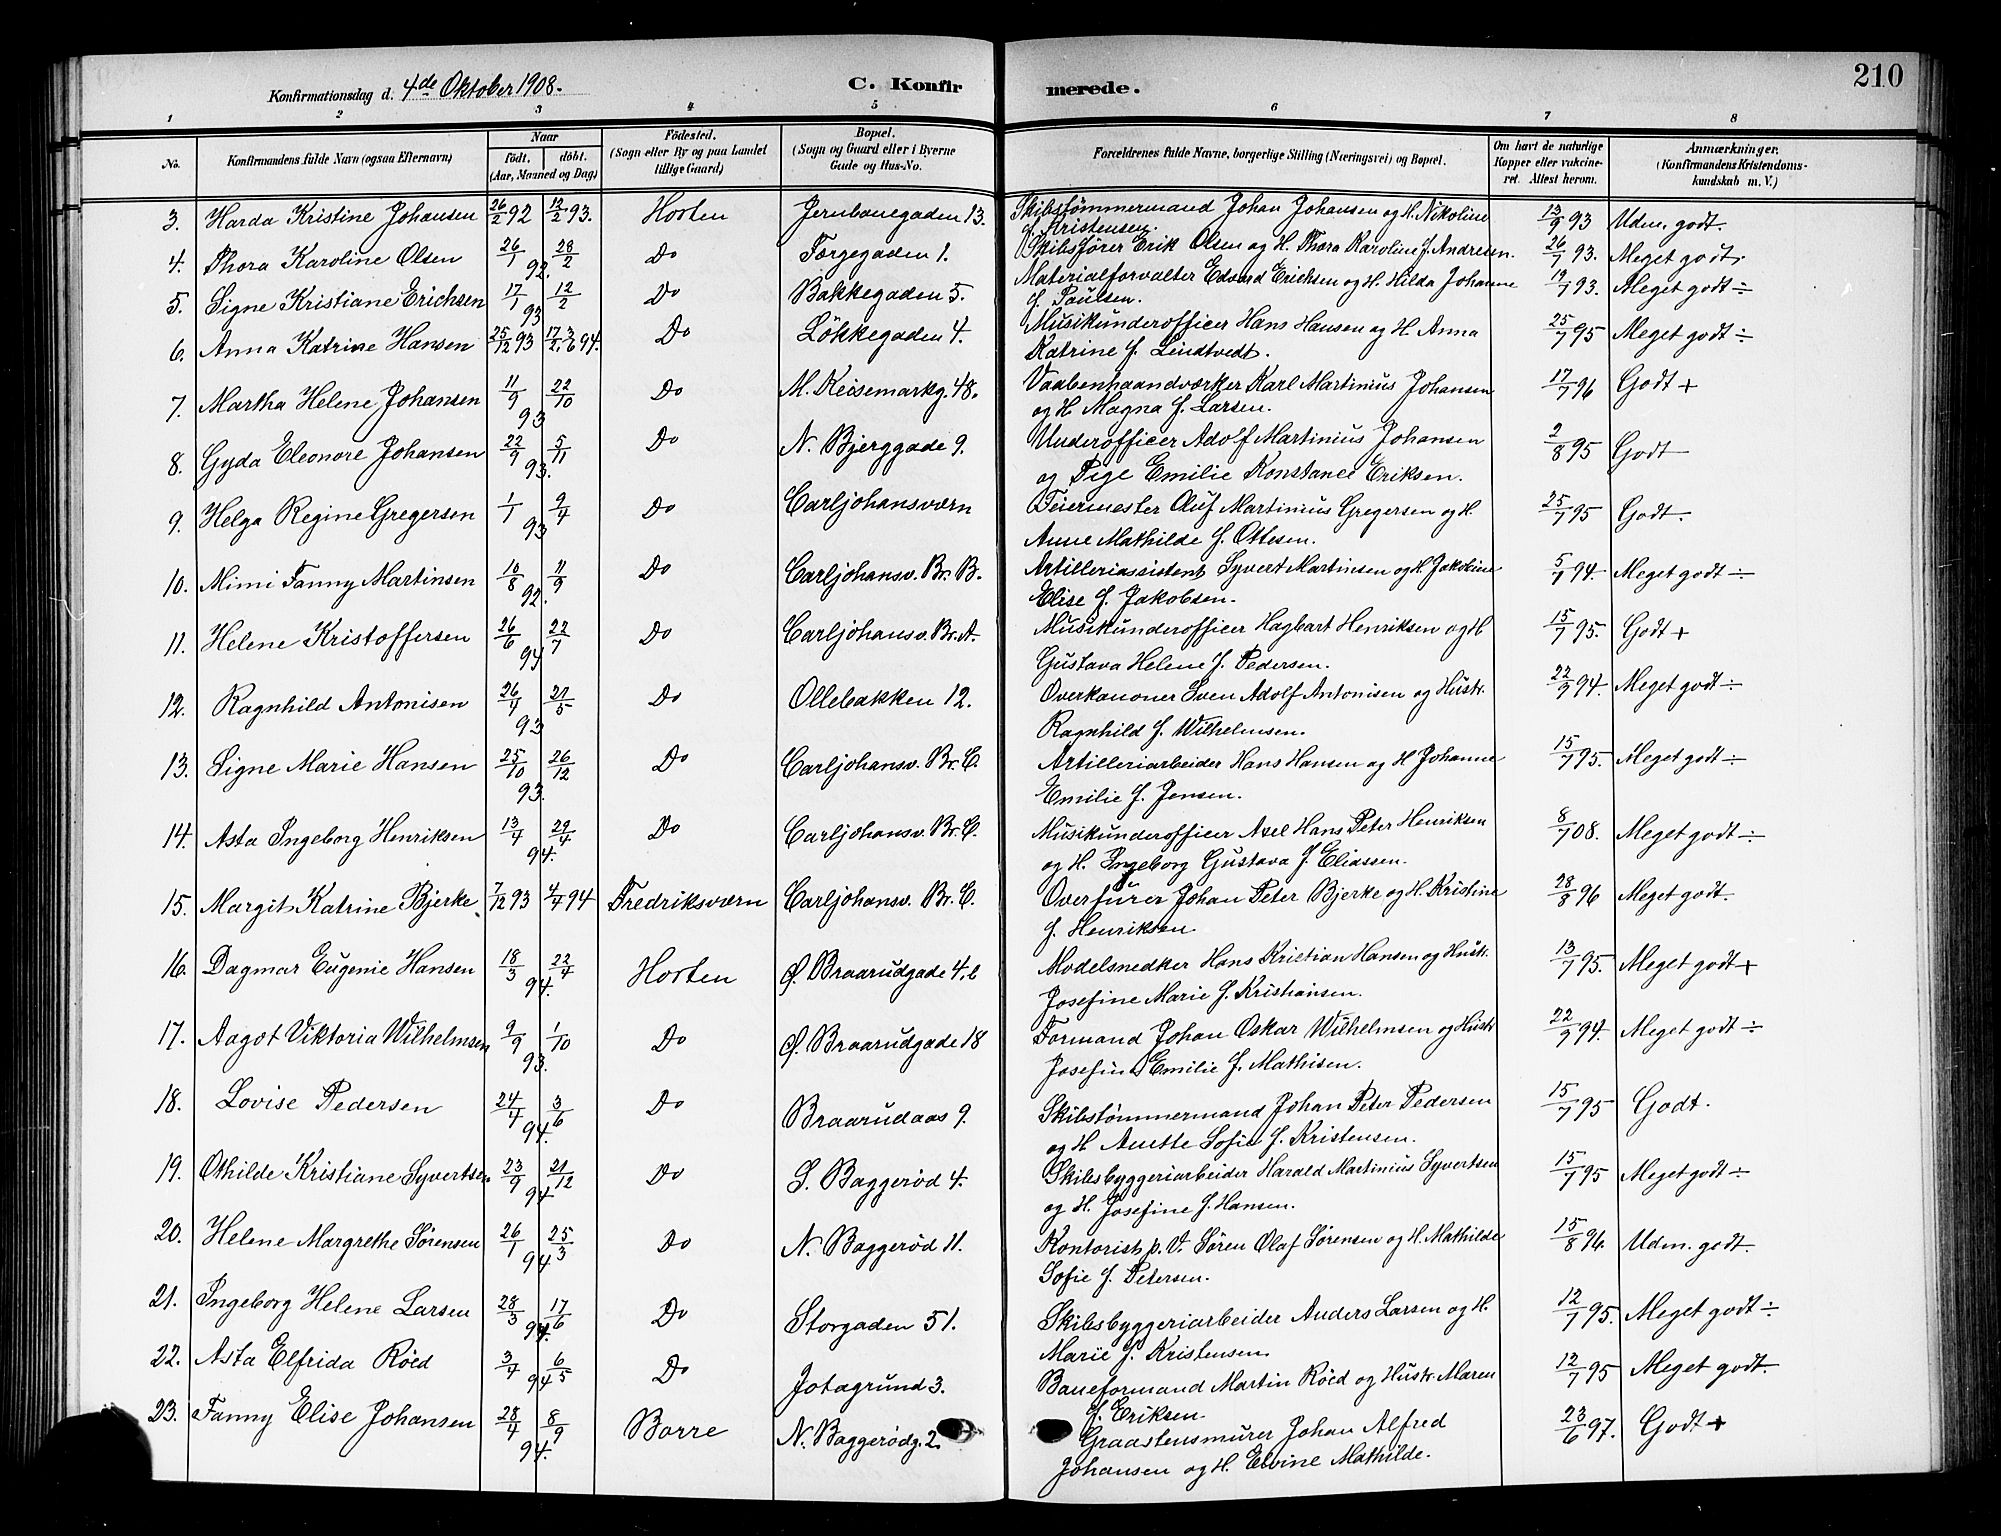 210
Konfirmationsdag d. 4de Oktober 1908. C. Konfirmerede.
1 2 3 4 5 6 7 8
No. Konfirmandens fulde Navn (ogsaa Efternavn) Naar födt. döbt. (Aar, Maaned og Dag) Födested. (Sogn eller By og paa Landet tillige Gaard) Bopæl. (Sogn og Gaard eller i Byerne Gade og Hus-No. Forældrenes fulde Navne, borgerlige Stilling (Næringsvei) og Bopæl. Om havt de naturlige Kopper eller vakcineret. Attest herom. Anmærkninger. (Konfirmandens Kristendomskundskab m. V.)
3. Harda Kristine Johansen 26/2 92 12/2 93. Horten Jernbanegaden 13. Skibstømmermand Johan Johansen og H. Nikoline f. Kristensen. 13/9 93 Udm. godt.
4. Thora Karoline Olsen 26/1 28/2 92. Do Torgegaden 1. Skibsfører Erik Olsen og H. Thora Karoline f. Andresen. 26/1 93. Meget godt.
5. Signe Kristiane Erichsen 17/1 12/2 93 Do Bakkegaden 5. Materialforvalter Edvard Erichsen og H. Hilda Johanne f. Paulsen. 19/7 93. Meget godt ÷
6. Anna Katrine Hansen 25/12 93 17/2. 3/6 94. Do Løkkegaden 4. Musikunderofficer Hans Hansen og H. Anna Katrine f. Lindtvedt. 25/7 95 Meget godt ÷
7. Martha Helene Johansen 11/9 22/10 93 Do M. Keisemarkg. 48. Vaabenhaandværker Karl Martinius Johansen og H. Magna f. Larsen. 17/7 96 Godt +
8. Gyda Eleonore Johansen 22/9 5/11 93. Do N. Bjerggade 9. Underofficer Adolf Martinius Johansen og Pige Emilie Konstance Eriksen. 2/8 95 Godt
9. Helga Regine Gregersen 1/1 9/4 93 Do Carljohansværn Feiermester Oluf Martinius Gregersen og H. Anne Mathilde f. Ottesen. 25/7 95 Godt.
10. Mimi Fanny Martinsen 10/8 11/9 92. Do Carljohansv. Br. B. Artilleriassistent Syvert Martinsen og H. Jakobine Elise f. Jakobsen. 5/1 94. Meget godt ÷
11. Helene Kristoffersen 26/6 22/7 94 Do Carljohansv. Br. A. Musikunderofficer Hagbart Henriksen og H Gustava Helene f. Pedersen. 15/7 95. Godt +
12. Ragnhild Antonisen 26/4 21/5 93 Do Ollebakken 12. Overkanoner Sven Adolf Antonisen og Hustr. Ragnhild f. Wilhelmsen. 22/9 94. Meget godt ÷
13. Signe Marie Hansen 25/10 26/12 93. Do Carljohansv. Br. C. Artilleriarbeider Hans Hansen og H Johanne Emilie f. Jensen. 15/7 95. Meget godt ÷
14. Asta Ingeborg Henriksen 13/4 29/4 94. Do Carljohansv. Br. C. Musikunderofficer Axel Hans Peter Henriksen og H. Ingeborg Gustava f. Eliassen. 8/7 08. Meget godt ÷
15. Margit Katrine Bjerke. 7/12 93 4/4 94 Fredriksværn Carljohansv. Br. C. Overfürer Johan Peter Bjerke og H. Kristine f. Henriksen. 28/8 96 Meget godt.
16. Dagmar Eugenie Hansen 18/3 22/4 94. Horten Ø. Braarudgade 4.b Modelsnedker Hans Kristian Hansen og Hustr. Josefine Marie f. Kristiansen. 13/7 95. Meget godt +
17. Aagot Viktoria Wilhelmsen 9/9 1/10 93. Do Ø. Braarudgade 18 Formand Johan Oskar Wilhelmsen og Hustr Josefine Emilie f. Mathisen. 22/9 94. Meget godt ÷
18. Lovise Pedersen 24/4 3/6 94. Do Braarudaas 9. Skibstømmermand Johan Peter Pedersen og H Anette Sofie f. Kristensen. 15/7 95 Godt.
19. Othilde Kristiane Syvertsen 23/9 21/12 94. Do S. Baggerød 4. Skibsbyggeriarbeider Harald Martinius Syvertsen og H. Josefine f. Hansen. 15/7 95 Meget godt ÷
20. Helene Margrethe Sørensen 26/1 25/3 94 Do N. Baggerød 11. Kontorist p. V. Søren Olaf Sørensen og H. Mathilde Sofie f. Petersen. 15/8 96. Udm. godt.
21. Ingeborg Helene Larsen 28/3 17/6 94. Do Storgaden 51. Skibsbyggeriarbeider Anders Larsen og H. Marie f. Kristensen. 12/7 95. Meget godt ÷
22. Asta Elfrida Röed 3/4 6/5 94 Do Jotagrund 3. Baneformand Martin Röed og Hustr. Maren f. Eriksen. 12/7 95 Meget godt.
23. Fanny Elise Johansen 28/4 8/9 94. Borre N. Baggerødg. 2. Graastensmurer Johan Alfred Johansen og H. Elvine Mathilde. 23/6 97. Godt +